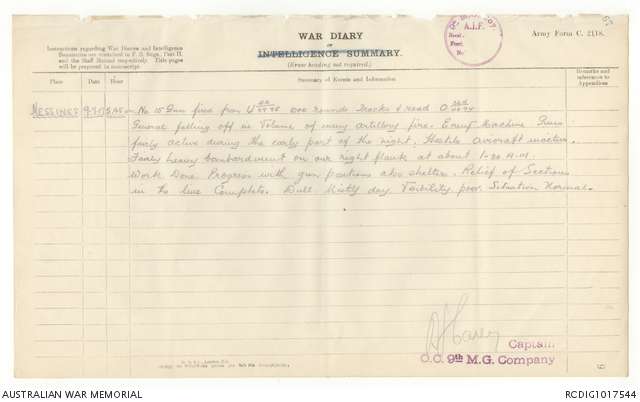 WAR DIARY
OF
INTELLIGENCE SUMMARY.
(Erase heading not required.)
Army Form C. 2118.
Instructions regarding War Diaries and Intelligence
Summaries are contained in F. S. Regs., Part II.
and the Staff Manual respectively. Title pages
will be prepared in manuscript.
A.I.F.
Place
Date
Hour
Summary of Events and Information
Remarks and
references to
Appendices
MESSINES
No 15 Gun fired from U rounds Tracks & road O
General falling off in Volume of enemy artillery fire. Enemy Machine Guns
fairly active during the early part of the night. Hostile aircraft inactive.
Fairly heavy bombardment on our right flank at about 1-30 A.M.
Work Done. Progress with gun positions also shelters. Relief of Sections
in the line Complete. Dull Misty day Visibility poor. Situation Normal.
Captain
O.C. 9th M.G. Company
AUSTRALIAN WAR MEMORIAL
RCDIG1017544